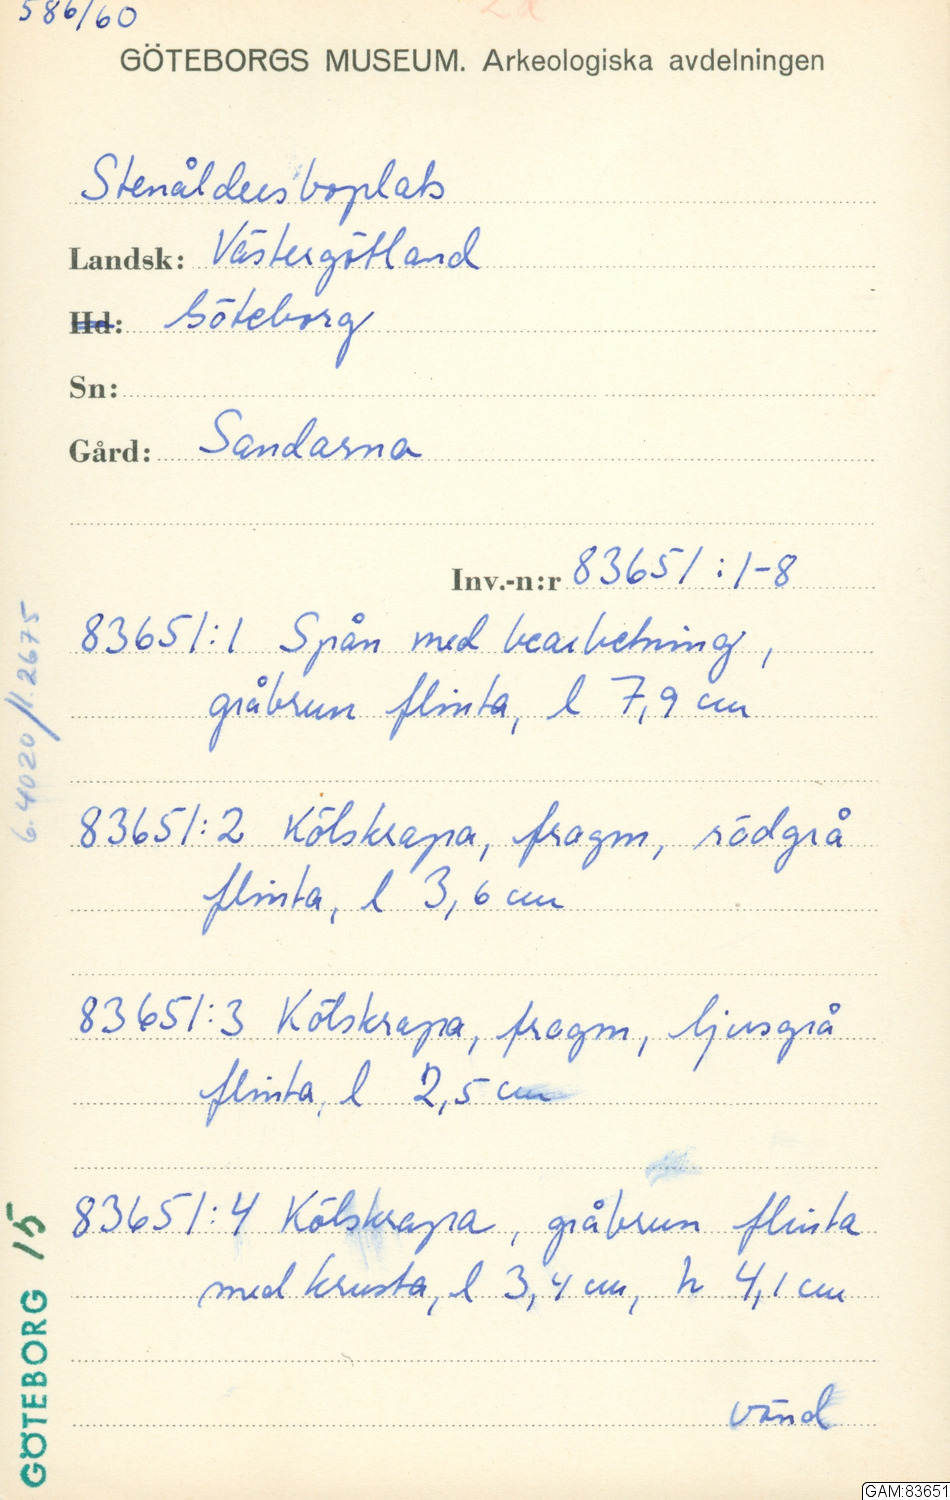 586/60
2a
GÖTEBORGS MUSEUM. Arkeologiska avdelningen
Stenåldersboplats
Landsk: Västergötland
Hd: Göteborg
Sn:
Gård: Sandarna
Inv.-n:r 83651:1-8
83651:1 Spån med bearbetning,
gråbrun flinta, l 7,9 cm
83651:2 Kölskrapa, fragm, rödgrå
flinta, l 3,6 cm
83651:3 Kölskrapa, fragm, ljusgrå
flinta, l 2,5 cm
83651:4 Kölskrapa, gråbrun flinta
med krusta, l 3,4 cm, h 4,1 cm
vänd
6.4020/11.2675
GÖTEBORG 15
GAM:83651